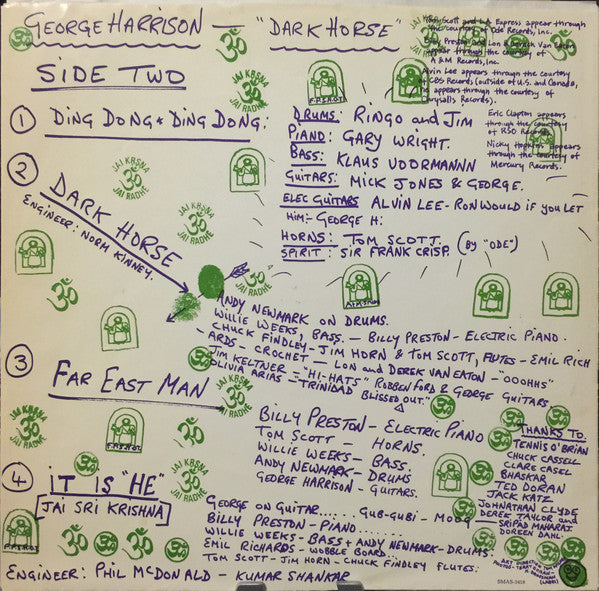 GEORGE HARRISON — "DARK HORSE"
Tom Scott and L.A. Express appear through
the courtesy of Ode Records, Inc.
Billy Preston and Lon & Derrek Van Eaton
appear through the courtesy of
A & M Records, Inc.
Alvin Lee appears through the courtesy
of CBS Records (outside of U.S. and Canada,
he appears through the courtesy of
Chrysalis Records).
Eric Clapton appears
through the courtesy
of RSO Records
Nicky Hopkins appears
through the courtesy of
Mercury Records.
SIDE TWO
① DING DONG * DING DONG.
DRUMS: RINGO and JIM
PIANO: GARY WRIGHT.
BASS: KLAUS VOORMANNN
GUITARS: MICK JONES & GEORGE.
ELEC GUITARS ALVIN LEE - RON WOULD IF YOU LET
HIM:- GEORGE H:
HORNS: TOM SCOTT. (By "ODE")
SPIRIT: SIR FRANK CRISP.
② DARK HORSE
ENGINEER: NORM KINNEY.
ANDY NEWMARK ON DRUMS.
WILLIE WEEKS, BASS. — BILLY PRESTON - ELECTRIC PIANO.
CHUCK FINDLEY - JIM HORN & TOM SCOTT, FLUTES - EMIL RICH
-ARDS - CROCHET — LON and DEREK VAN EATON - "OOOHHS"
JIM KELTNER = "HI-HATS" ROBBEN FORD & GEORGE GUITARS
OLIVIA ARIAS - "TRINIDAD BLISSED OUT."
③ FAR EAST MAN
BILLY PRESTON - ELECTRIC PIANO
TOM SCOTT — HORNS.
WILLIE WEEKS - BASS.
ANDY NEWMARK - DRUMS
GEORGE HARRISON - GUITARS.
THANKS TO.
TENNIS O'BRIAN
CHUCK CASSELL
CLARE CASEL
BHASKAR
TED DORAN
JACK KATZ
JOHNATHAN CLYDE
DEREK TAYLOR and
SRIPAD MAHARAJ.
DOREEN DAHL.
④ IT IS "HE"
JAI SRI KRISHNA
GEORGE ON GUITAR..... GUB-GUBI - MOOG
BILLY PRESTON - PIANO......
WILLIE WEEKS - BASS + ANDY NEWMARK - DRUMS.
EMIL RICHARDS - WOBBLE BOARD...
TOM SCOTT - JIM HORN - CHUCK FINDLEY FLUTES.
ENGINEER: PHIL McDONALD - KUMAR SHANKAR
SMAS-3418
JAI KRSNA
JAI RADHE
JAI KRSNA
JAI RADHE
JAI KRSNA
JAI RADHE
JAI RADHE
JAI KRSNA
JAI RADHE
JAI KRSNA
JAI RADHE
JAI KRSNA
JAI RADHE
JAI KRSNA
JAI RADHE
F.P.S.H.O.T.
F.P.S.H.O.T.
F.P.S.H.O.T.
ॐ